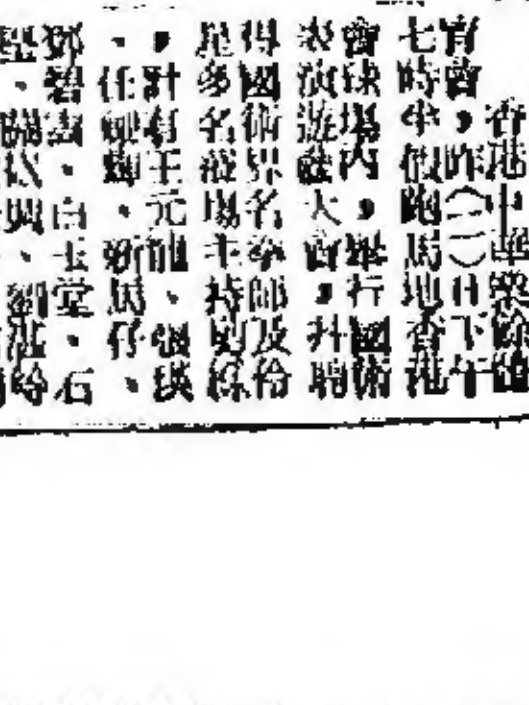 香港中華業餘體
育會，昨（二）日下午
七時半，假跑馬地香港
會球場內，舉行國術
表演遊藝大會，幷聘
得國術界名拳師及伶
星多名蒞場主持
，計有王元龍、張瑛
、任劍輝、新馬仔、
鄧碧雲、白玉堂、石
堅、